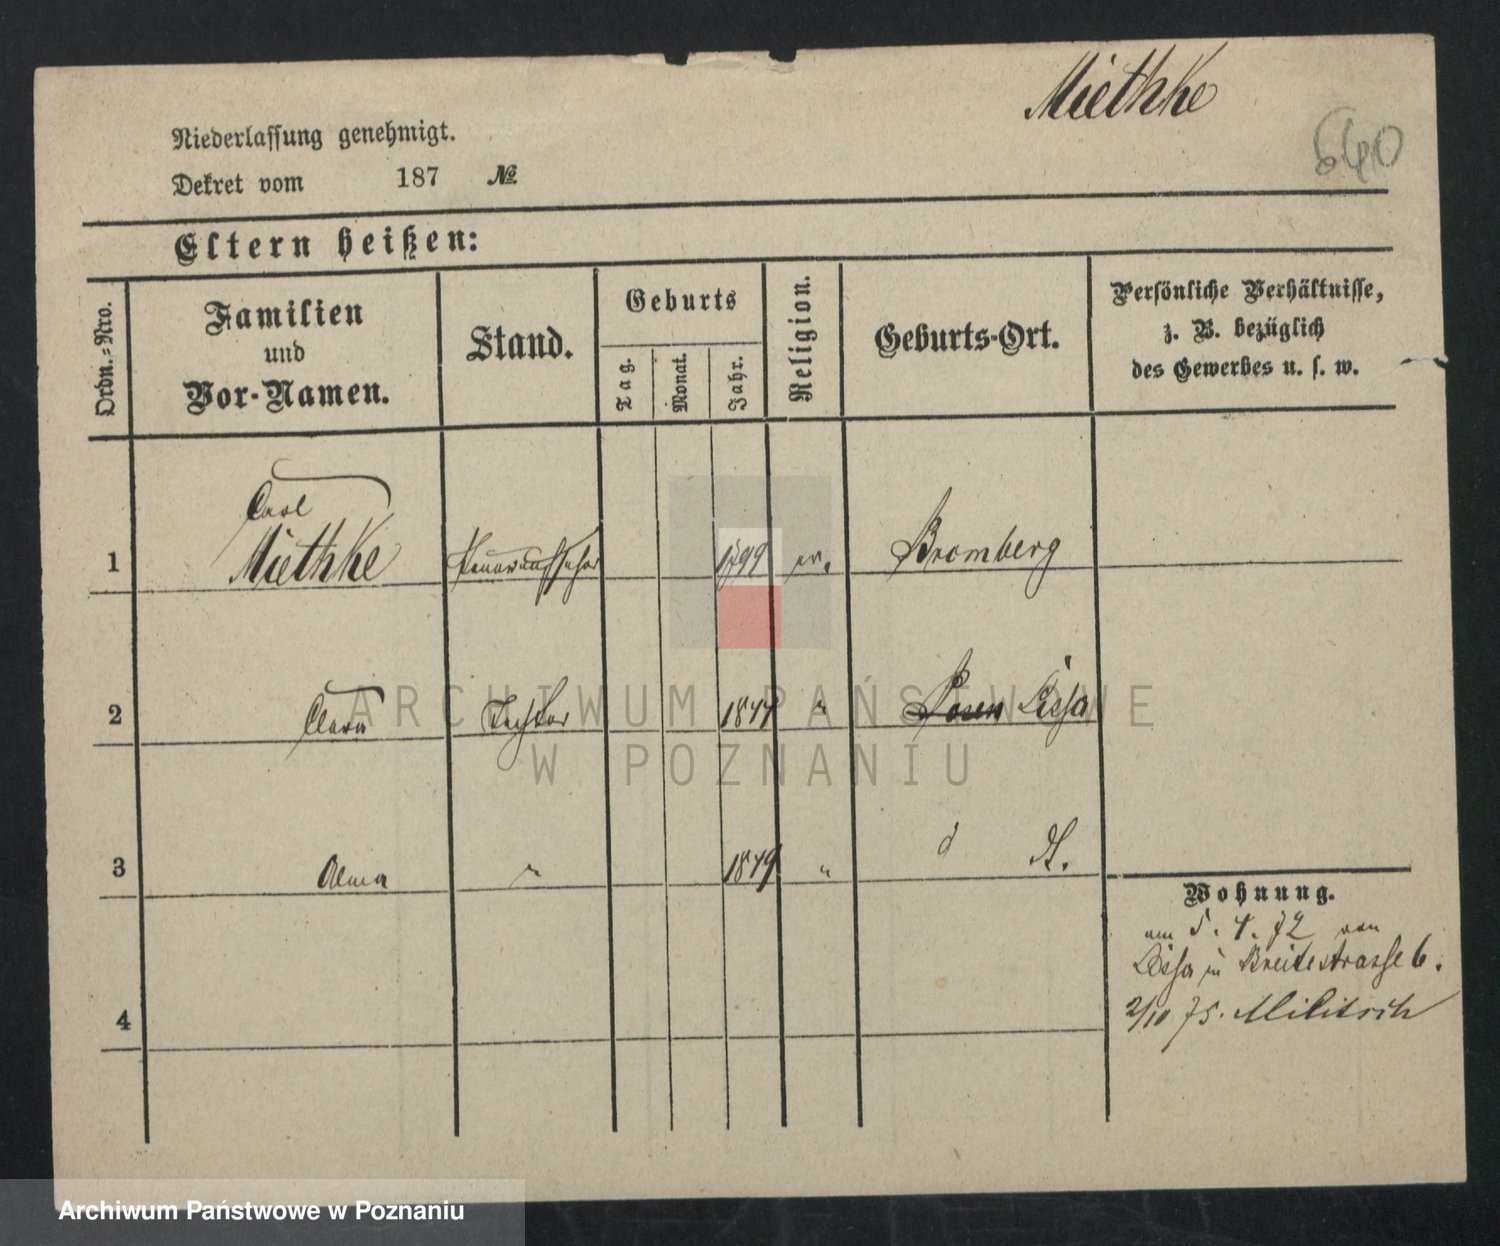 Miethke
640
Niederlassung genehmigt.
Dekret vom 187 №
Eltern heißen:
Ordn.-Nro.
Familien
und
Vor-Namen.
Stand.
Geburts
Tag.
Monat.
Jahr.
Religion.
Geburts-Ort.
Persönliche Verhältnisse,
z. B. bezüglich
des Gewerbes u. s. w.
Carl
1 Miethke 1799 ev. Bromberg
2 Clara Tochter 1844 " Posen Lissa
3 Alma " 1849 " d
4
Wohnung.
am 5. 4. 72 von
Lissa in Breitestrasse 6.
2/10 75. Militsch
ARCHIWUM PAŃSTWOWE
W POZNANIU
Archiwum Państwowe w Poznaniu